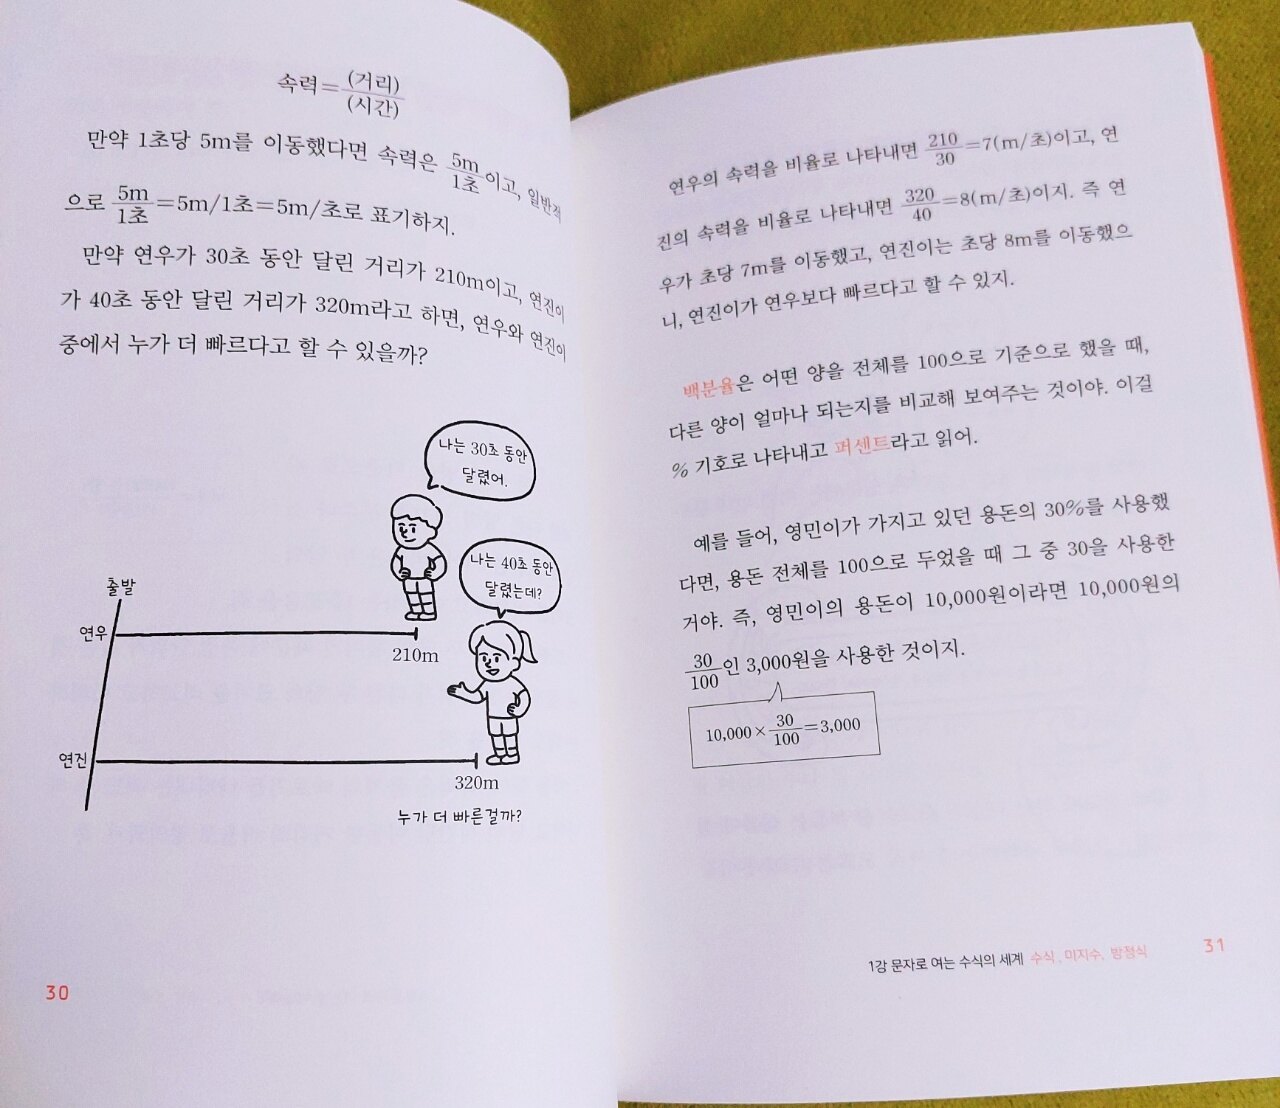 속력=(거리)/(시간)
만약 1초당 5m를 이동했다면 속력은 5m/1초이고, 일반적
으로 5m/1초=5m/1초=5m/초로 표기하지.
만약 연우가 30초 동안 달린 거리가 210m이고, 연진이
가 40초 동안 달린 거리가 320m라고 하면, 연우와 연진이
중에서 누가 더 빠르다고 할 수 있을까?
나는 30초 동안
달렸어.
나는 40초 동안
달렸는데?
출발
연우
210m
연진
320m
누가 더 빠른걸까?
30
연우의 속력을 비율로 나타내면 210/30=7(m/초)이고, 연
진의 속력을 비율로 나타내면 320/40=8(m/초)이지. 즉 연
우가 초당 7m를 이동했고, 연진이는 초당 8m를 이동했으
니, 연진이가 연우보다 빠르다고 할 수 있지.
백분율은 어떤 양을 전체를 100으로 기준으로 했을 때,
다른 양이 얼마나 되는지를 비교해 보여주는 것이야. 이걸
% 기호로 나타내고 퍼센트라고 읽어.
예를 들어, 영민이가 가지고 있던 용돈의 30%를 사용했
다면, 용돈 전체를 100으로 두었을 때 그 중 30을 사용한
거야. 즉, 영민이의 용돈이 10,000원이라면 10,000원의
30/100인 3,000원을 사용한 것이지.
10,000×30/100=3,000
1강 문자로 여는 수식의 세계 수식, 미지수, 방정식
31